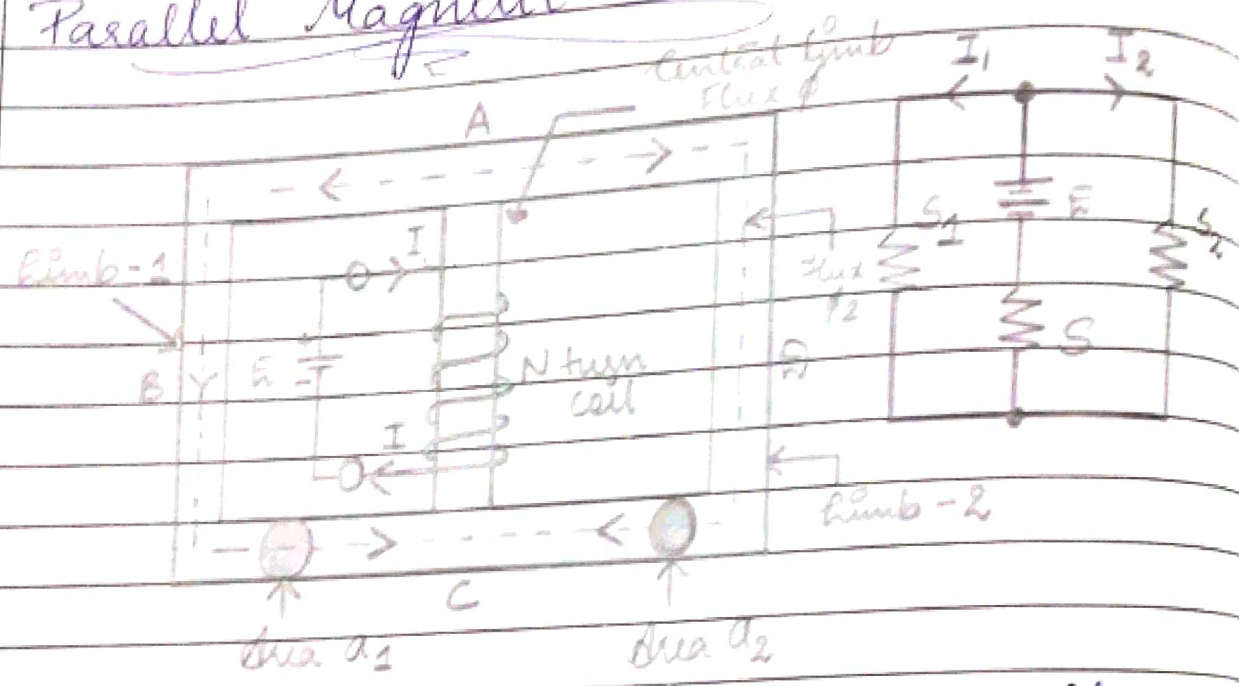 Parallel Magnetic
Central limb
Flux ϕ
I₁
I₂
A
Limb-1
I
S1
E
S₂
Flux
ϕ₂
B
E
N turn
coil
D
S
I
Limb-2
C
Area a1
Area a2